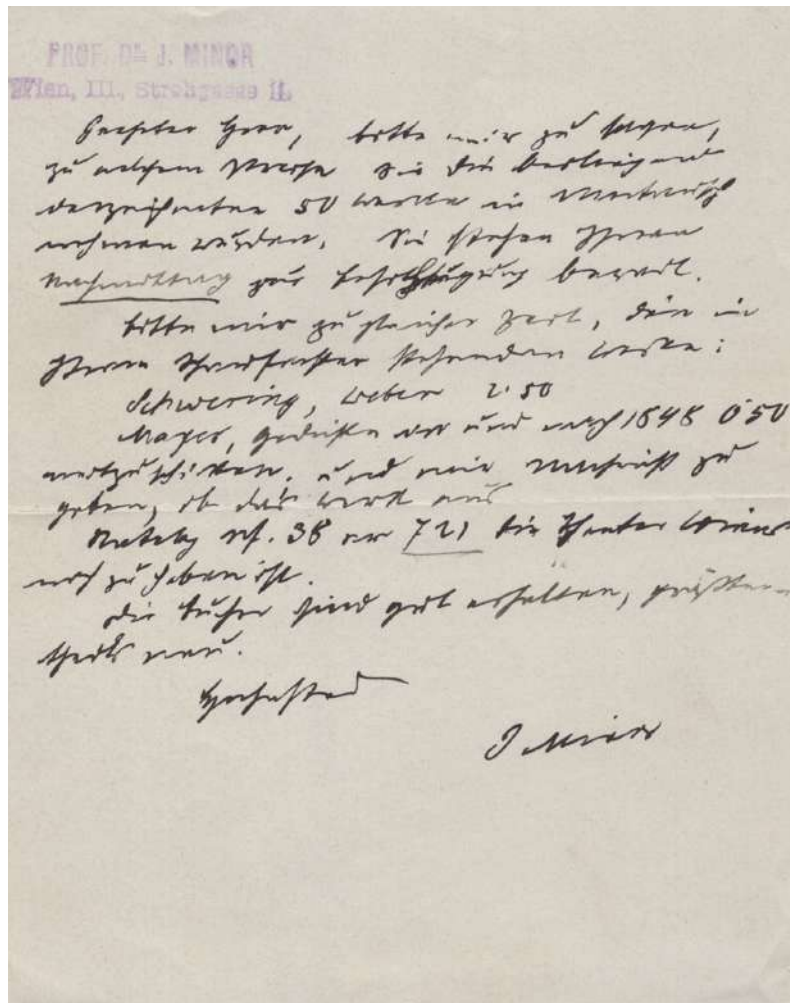 PROF. DR. J. MINOR
Wien, III., Strohgasse 11.
Geehrter Herr, bitte mir zu sagen,
zu welchem Preise Sie die beiliegend
verzeichneten 50 Werke in Umtausch
nehmen würden. Sie stehen Ihnen
Nachmittag zur Besichtigung bereit.
Bitte mir zu gleicher Zeit, die in
Ihrem Schaufenster stehenden Werke:
Schwering, Weber 2.50
Mayer, Gedichte vor und nach 1848 0.50
mitzuschicken, und mir Nachricht zu
geben, ob das Werk aus
38 721 die Theater Wiens
noch zu haben ist.
Die Bücher sind gut erhalten, größten-
theils neu.
J Minor